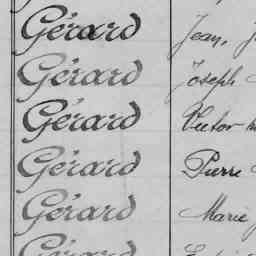 Gérard Jean, J
Gérard Joseph
Gérard Victor
Gérard Pierre
Gérard Marie
Gérard